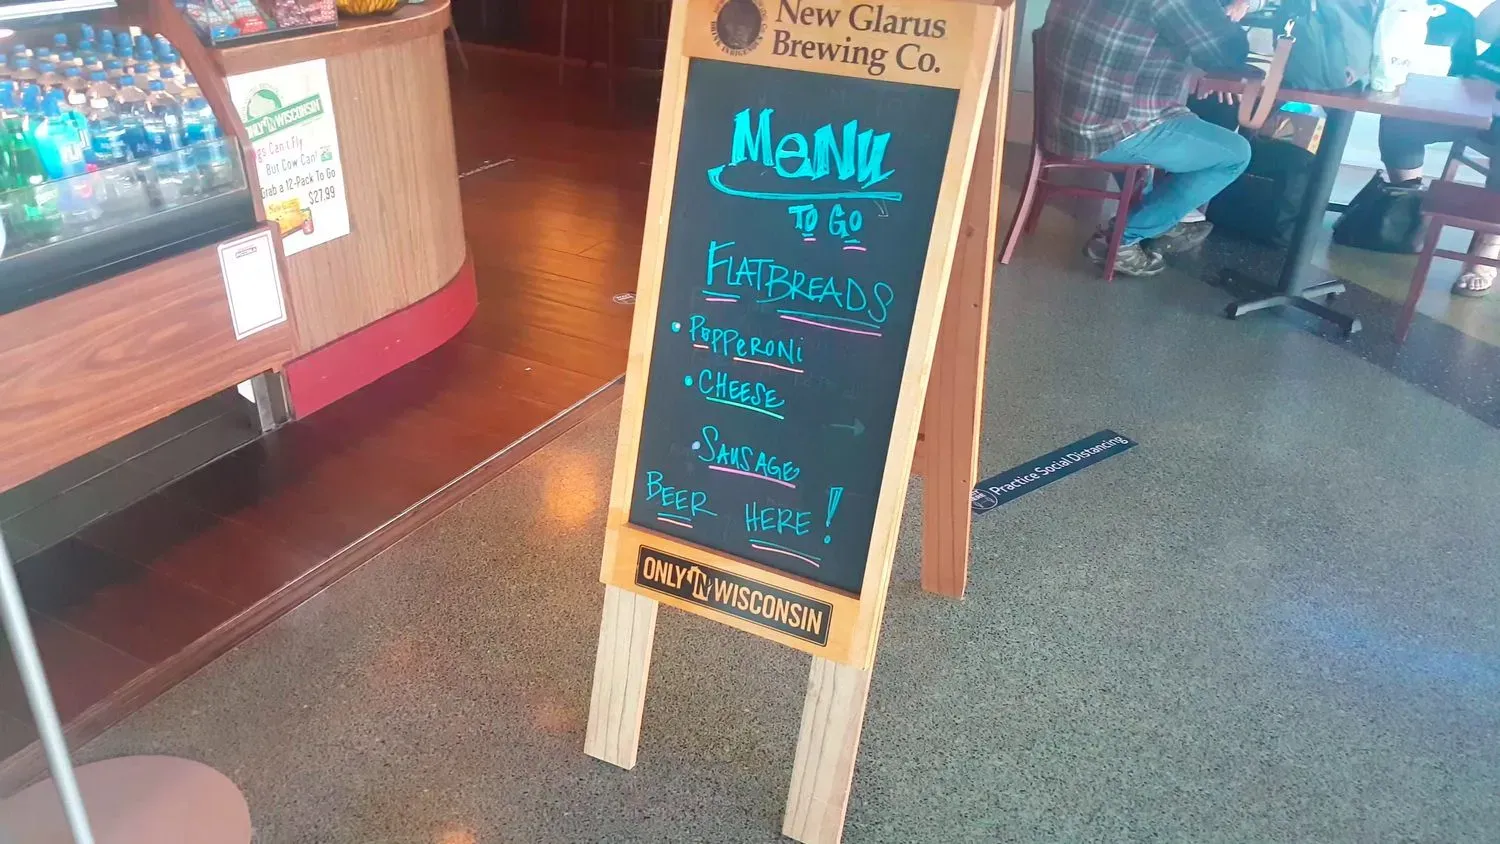 New Glarus
Brewing Co.
MeNU
To Go
FLATBREADS
• PePPeRONi
• CHEESE
• SAUSAGE
BEER HERE!
ONLY IN WISCONSIN
ONLY IN WISCONSIN
Can't Fly
But Cow Can!
Grab a 12-Pack To Go
$27.99
Practice Social Distancing